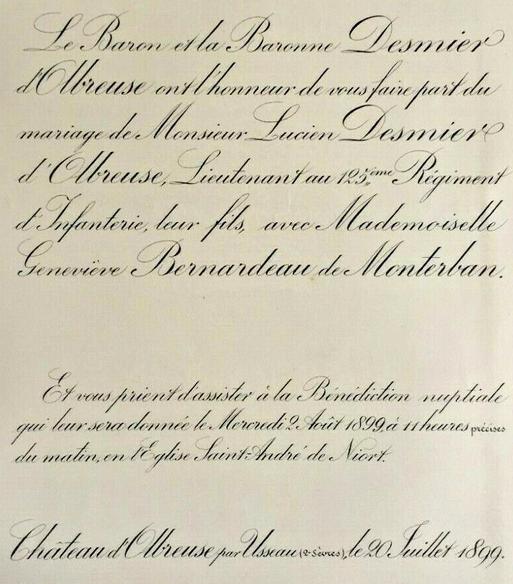 Le Baron et la Baronne Desmier
d'Olbreuse ont l'honneur de vous faire part du
mariage de Monsieur Lucien Desmier
d'Olbreuse, Lieutenant au 125ème Régiment
d'Infanterie, leur fils, avec Mademoiselle
Geneviève Bernardeau de Monterban.
Et vous prient d'assister à la Bénédiction nuptiale
qui leur sera donnée le Mercredi 2 Août 1899, à 11 heures précises
du matin, en l'Eglise Saint-André de Niort.
Château d'Olbreuse par Usseau (2-Sèvres), le 20 Juillet 1899.